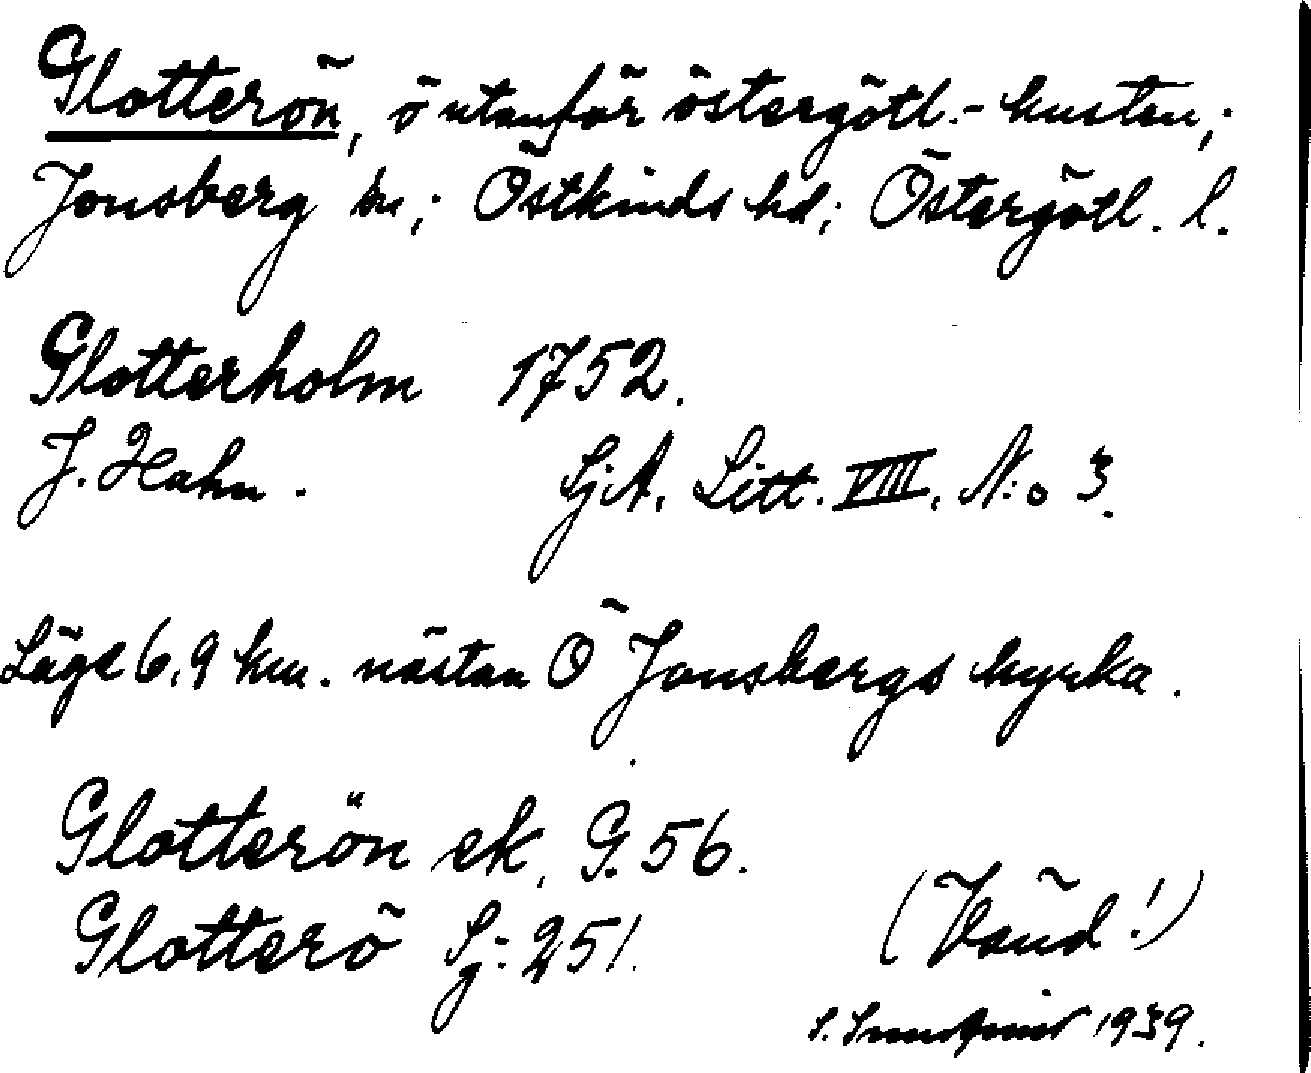 Glotterön, ö utanför östergötl.- kusten,;
Jonsberg sn,; Östkinds hd,; Östergötl. l.
Glotterholm 1752.
J. Hahn. SjA. Litt. VIII, N:o 3.
Läge 6,9 km. nästan Ö Jonsbergs kyrka.
Glotterön ek. G. 56.
Glotterö Sj: 251.
(Vänd!)
S. 1939.